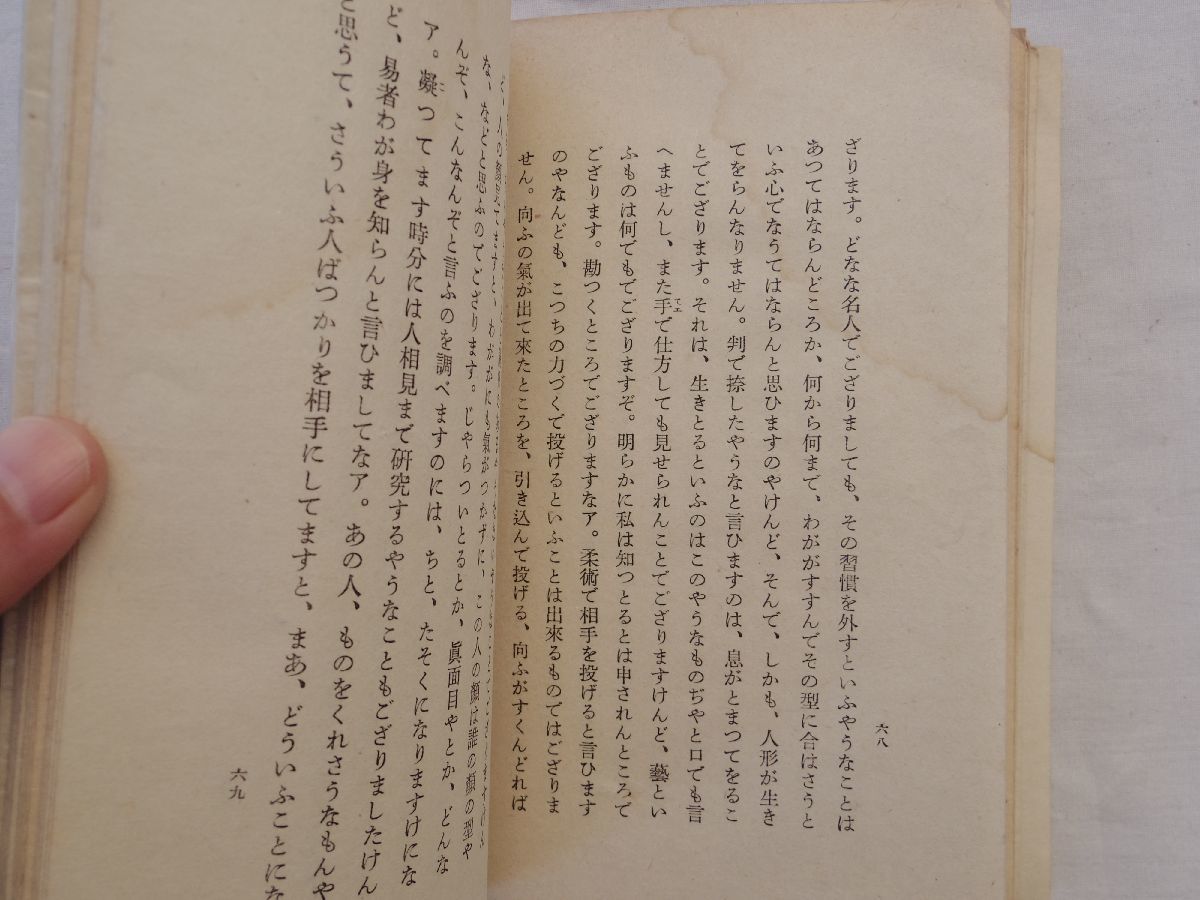 ざります。どなな名人でござりましても、その習慣を外すといふやうなことは
あつてはならんどころか、何から何まで、わががすすんでその型に合はさうと
いふ心でなうてはならんと思ひますのやけんど、そんで、しかも、人形が生き
てをらんなりません。判で捺したやうなと言ひますのは、息がとまつてをるこ
とでござります。それは、生きとるといふのはこのやうなものぢやと口でも言
へませんし、また手で仕方しても見せられんことでござりますけんど、藝とい
ふものは何でもでござりますぞ。明らかに私は知つとるとは申されんところで
ござります。勘つくところでござりますなア。柔術で相手を投げると言ひます
のやなんども、こつちの力づくで投げるといふことは出來るものではござりま
せん。向ふの氣が出て來たところを、引き込んで投げる、向ふがすくんどれば
六八
な、などと思ふのでござります。じやらついとるとか、眞面目やとか、どんな
んぞ、こんなんぞと言ふのを調べますのには、ちと、たそくになりますけにな
ア。凝つてます時分には人相見まで研究するやうなこともござりましたけん
ど、易者わが身を知らんと言ひましてなア。あの人、ものをくれさうなもんや
と思うて、さういふ人ばつかりを相手にしてますと、まあ、どういふことにな
六九